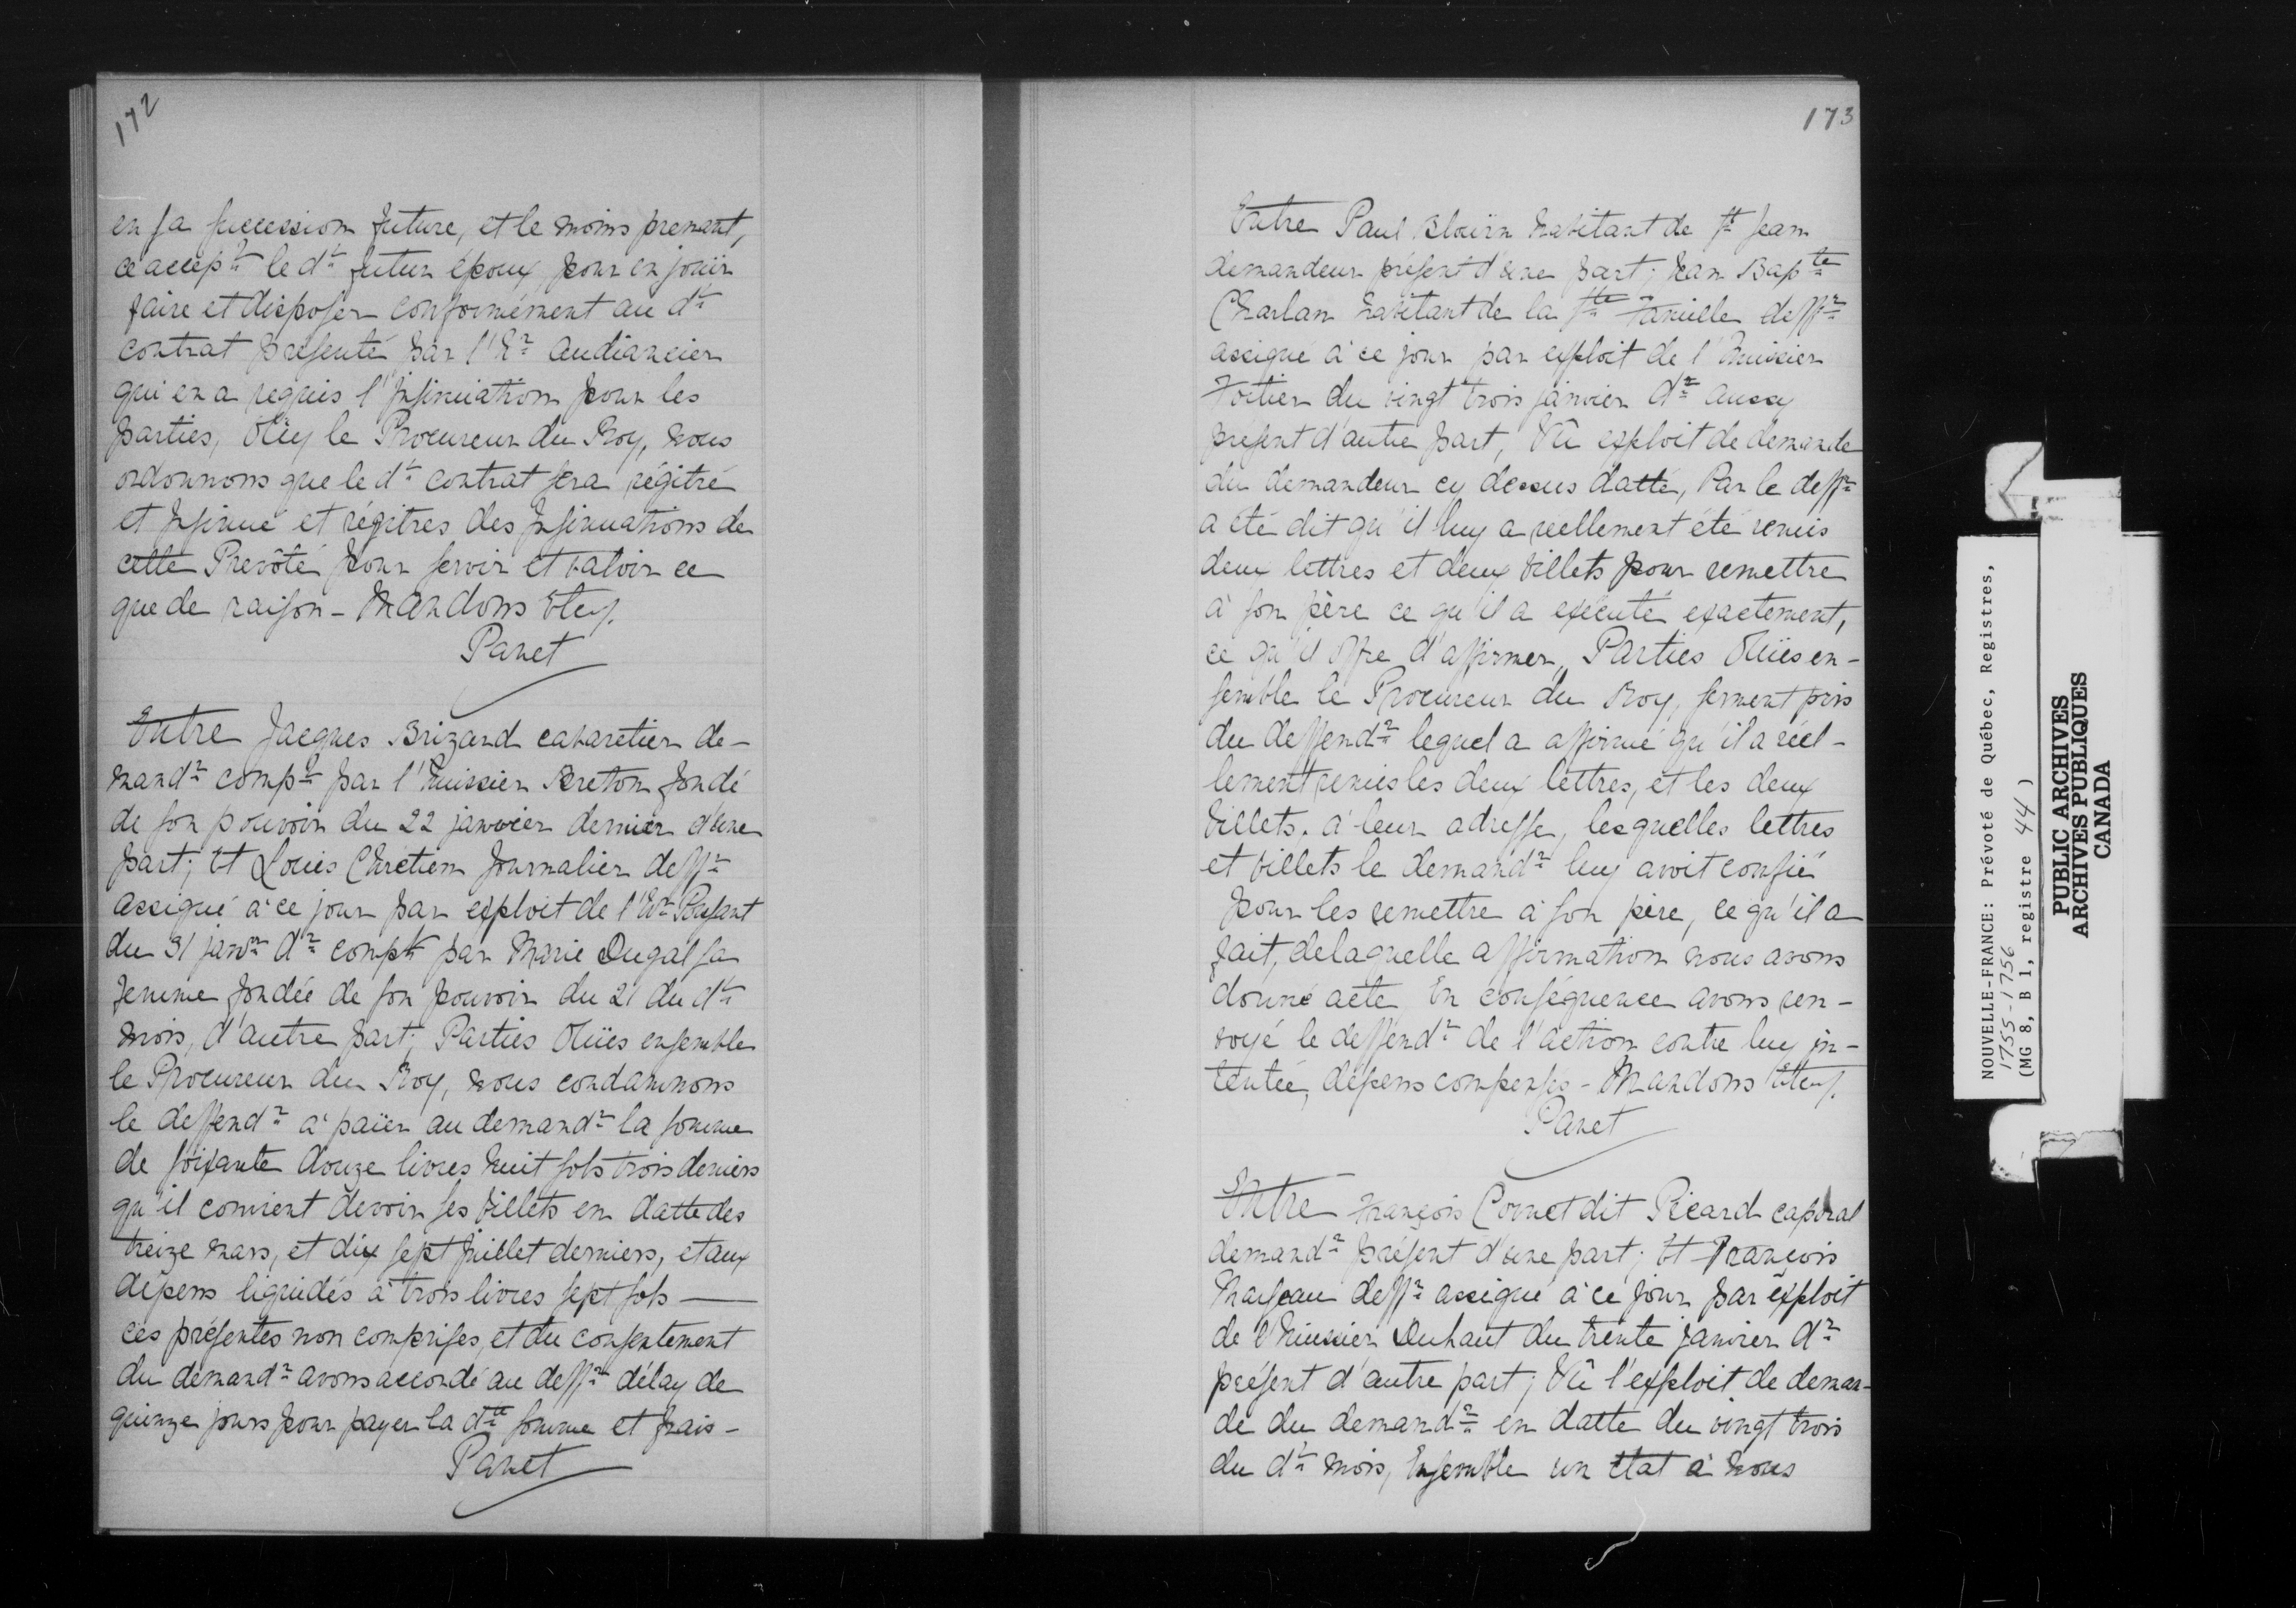 172
en sa succession future, et le moins prenant,
ce accept. le dt. futur époux, pour en joüir
faire et disposer conformément au dt.
contrat présenté par l'hr. audiancier
qui en a requis l'insinuation pour les
parties, Oüy le Procureur du Roy, nous
ordonnons que le dt. contrat sera régitré
et insinué et régitres des insinuations de
cette Prevôté pour servir et valoir ce
que de raison - Mandons Etc.
Panet
Entre Jacques Brizard cabaretier de-
mandr. compt. par l'huissier Breton fondé
de son pouvoir du 22 janvier dernier d'une
part; Et Loüis Chrétien Journalier deffr.
assigné à ce jour par exploit de l'hr.
du 31 janvr. dr. compt. par Marie Dugal sa
femme fondée de son pouvoir du 21 du dt.
mois, d'autre part; Parties Oüies ensemble
le Procureur du Roy, nous condamnons
le deffendr. à païer au demandr. la somme
de soixante douze livres huit sols trois deniers
qu'il convient devoir ses billets en datte des
treize mars, et dix sept juillet derniers, et aux
dépens liquidés à trois livres sept sols —
ces présentes non comprises, et du consentement
du demandr. avons accordé au deffr. délay de
quinze jours pour payer la dte. somme et frais -
Panet
173
Entre Paul Bloüin habitant de St. Jean
demandeur présent d'une part; Jean Bapte.
Charlan habitant de la Ste. Famille deffr.
assigné à ce jour par exploit de l'huissier
Voitier du vingt trois janvier dr. aussy
présent d'autre part, Vû exploit de demande
du demandeur cy dessus datté, Par le deffr.
a été dit qu'il luy a réellement été remis
deux lettres et deux billets pour remettre
à son père ce qu'il a exécuté exactement,
ce qu'il offre d'affirmer, Parties Oüies en-
semble le Procureur du Roy, serment pris
du deffendr. lequel a affirmé qu'il a réel-
lement remis les deux lettres, et les deux
billets. à leur adresse, lesquelles lettres
et billets le demandr. luy avoit confié
pour les remettre à son père, ce qu'il a
fait, de laquelle affirmation nous avons
donné acte, En conséquence avons ren-
voyé le deffendr. de l'action contre luy in-
tentée, dépens compensés - Mandons Etc.
Panet
Entre François Cornet dit Picard caporal
demandr. présent d'une part; Et François
Marseau deffr. assigné à ce jour par exploit
de l'huissier Duhaut du trente janvier dr.
présent d'autre part; Vû l'exploit de deman-
de du demandr. en datte du vingt trois
du dt. mois, Ensemble un état à nous
NOUVELLE-FRANCE: Prévoté de Québec, Registres,
1755-1756
(MG 8, B 1, registre 44)
PUBLIC ARCHIVES
ARCHIVES PUBLIQUES
CANADA